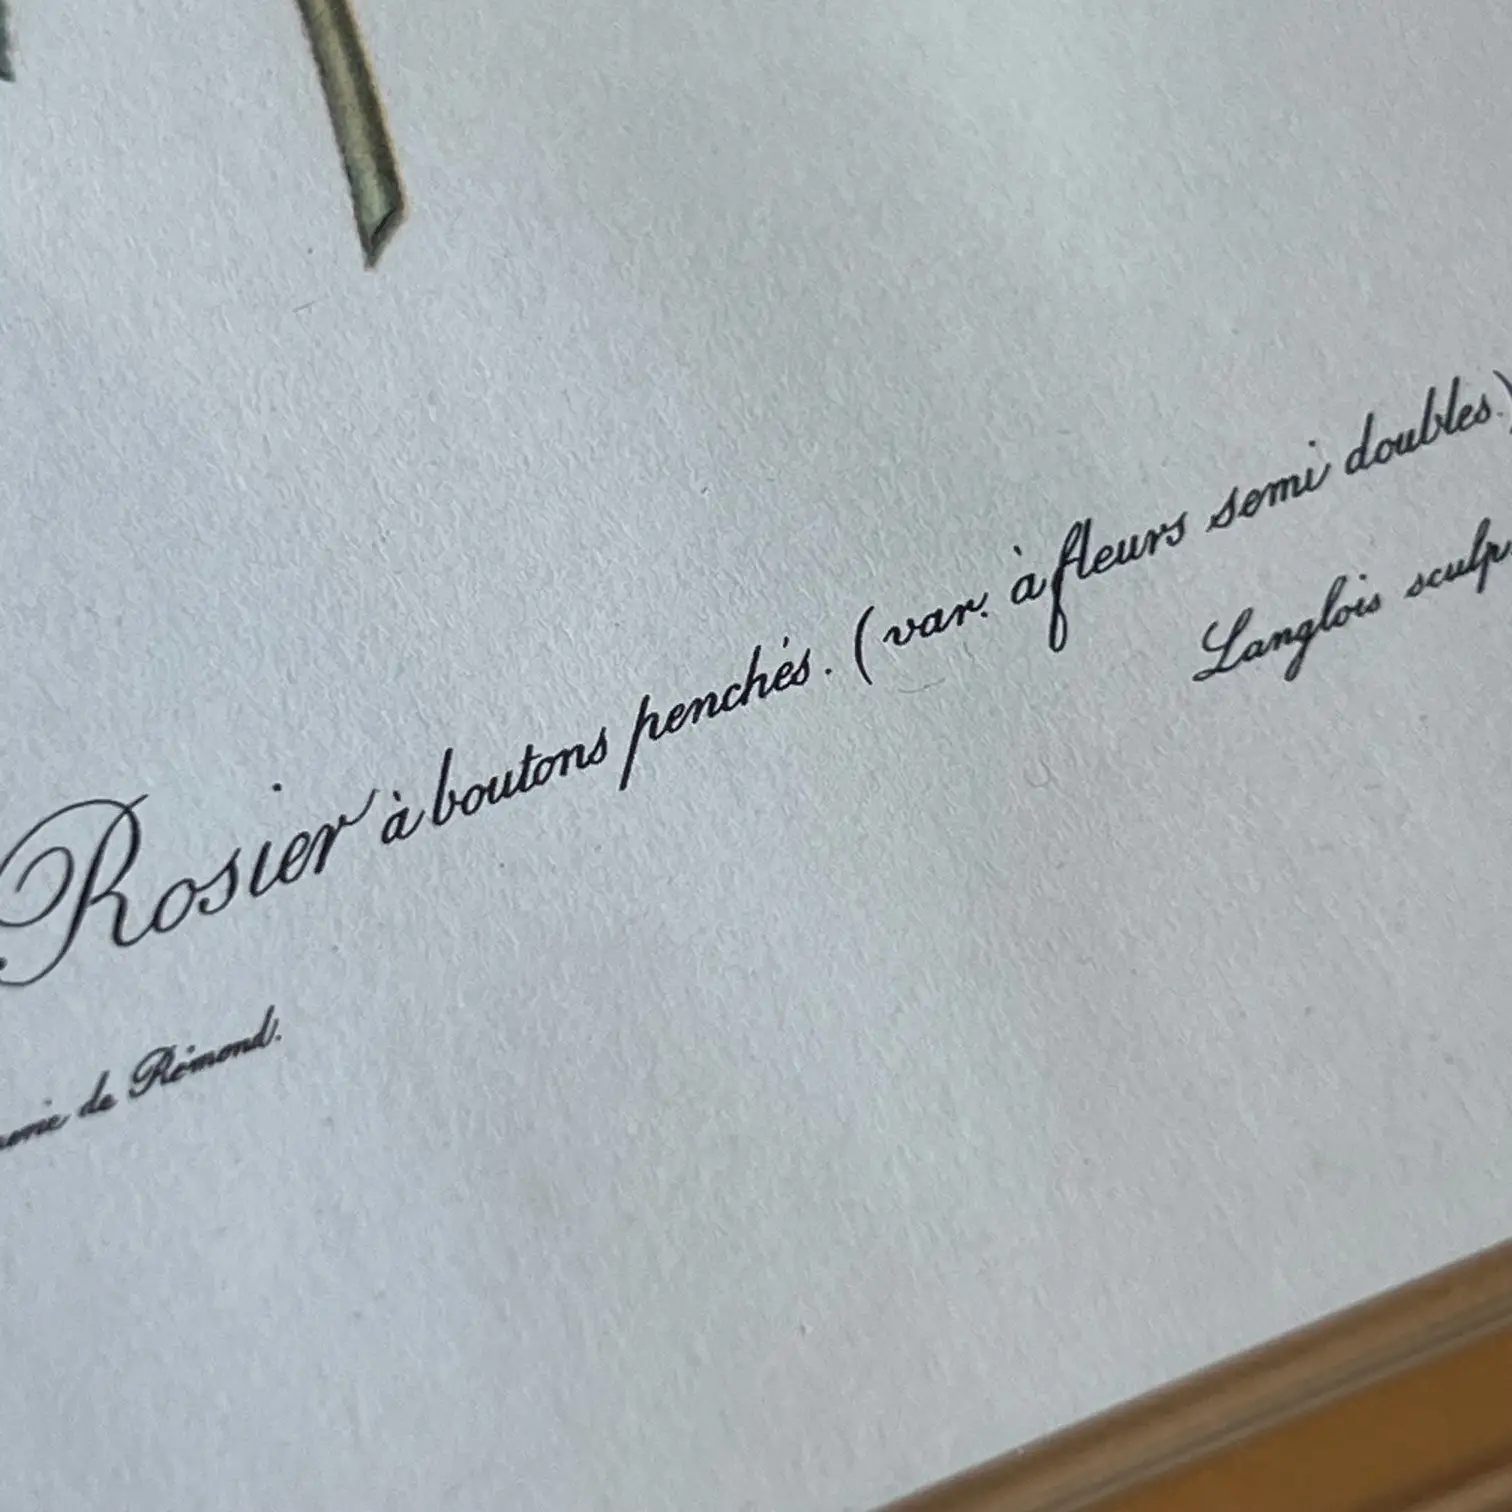 Rosier à boutons penchés. (var. à fleurs semi doubles.)
de Rémond.
Langlois sculp